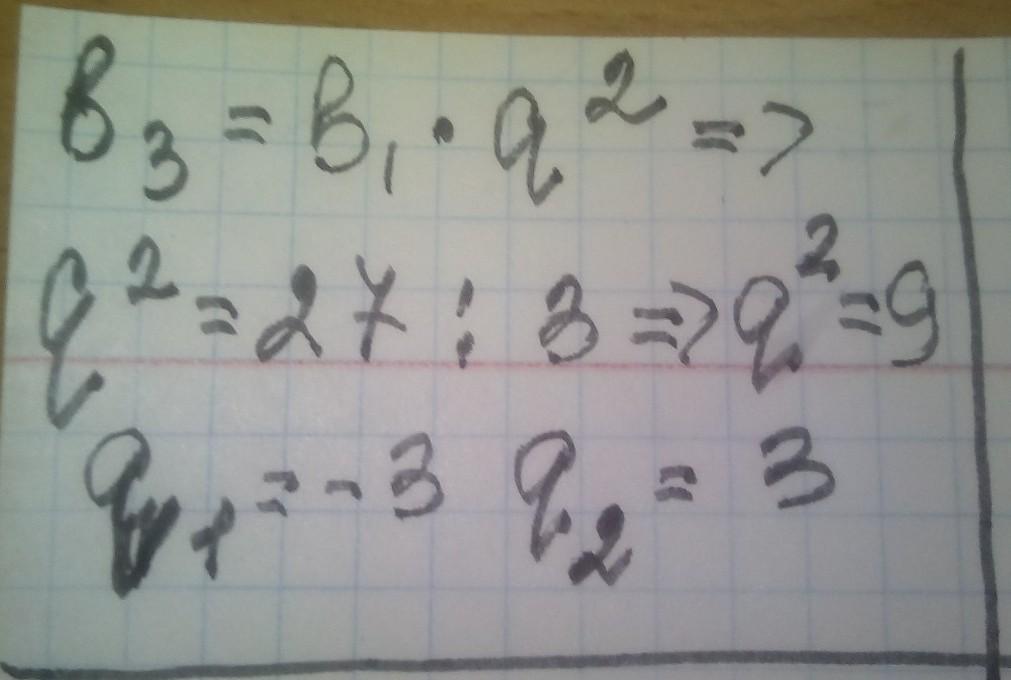 b₃ = b₁ · q² =>
q² = 27 : 3 => q² = 9
q₁ = -3 q₂ = 3